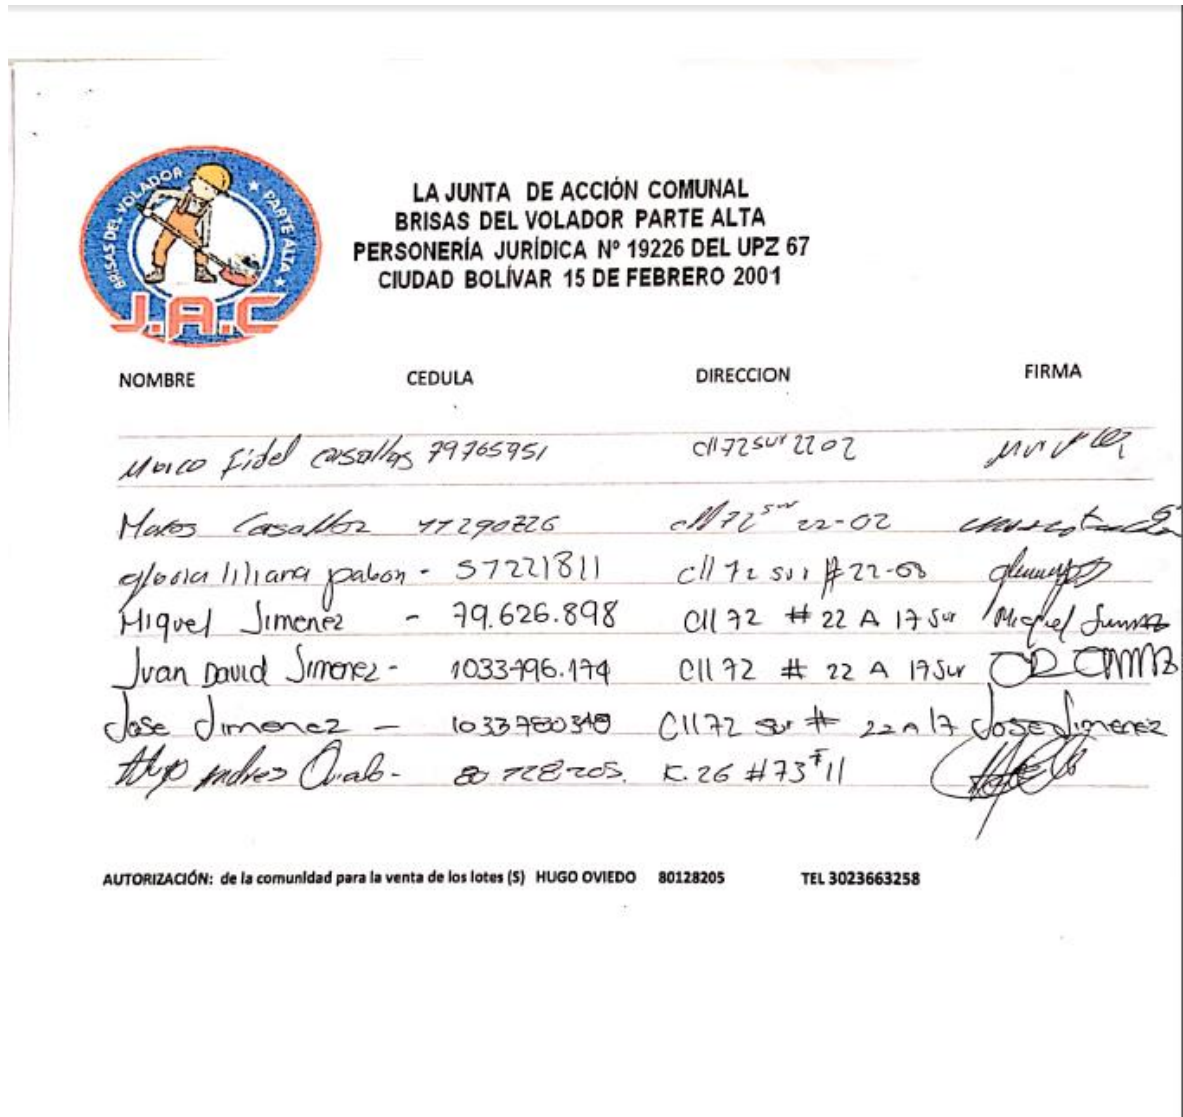 BRISAS DEL VOLADOR ★ PARTE ALTA ★
J.A.C
LA JUNTA DE ACCIÓN COMUNAL
BRISAS DEL VOLADOR PARTE ALTA
PERSONERÍA JURÍDICA Nº 19226 DEL UPZ 67
CIUDAD BOLÍVAR 15 DE FEBRERO 2001
NOMBRE CEDULA DIRECCION FIRMA
Marco Fidel Casallas 79765951 cll 72 sur 22 02
Casallas 22-02
gloria liliana pabon - 57221811 cll 72 sur # 22-03
Miguel Jimenez - 79.626.898 Cll 72 # 22 A 17 Sur Miguel Jimenez
Juan David Jimenez - Cll 72 # 22 A 17 Sur
Jose Jimenez - Cll 72 sur # 22 A 17 Jose Jimenez
K. 26 # 73
AUTORIZACIÓN: de la comunidad para la venta de los lotes (S) HUGO OVIEDO 80128205 TEL 3023663258